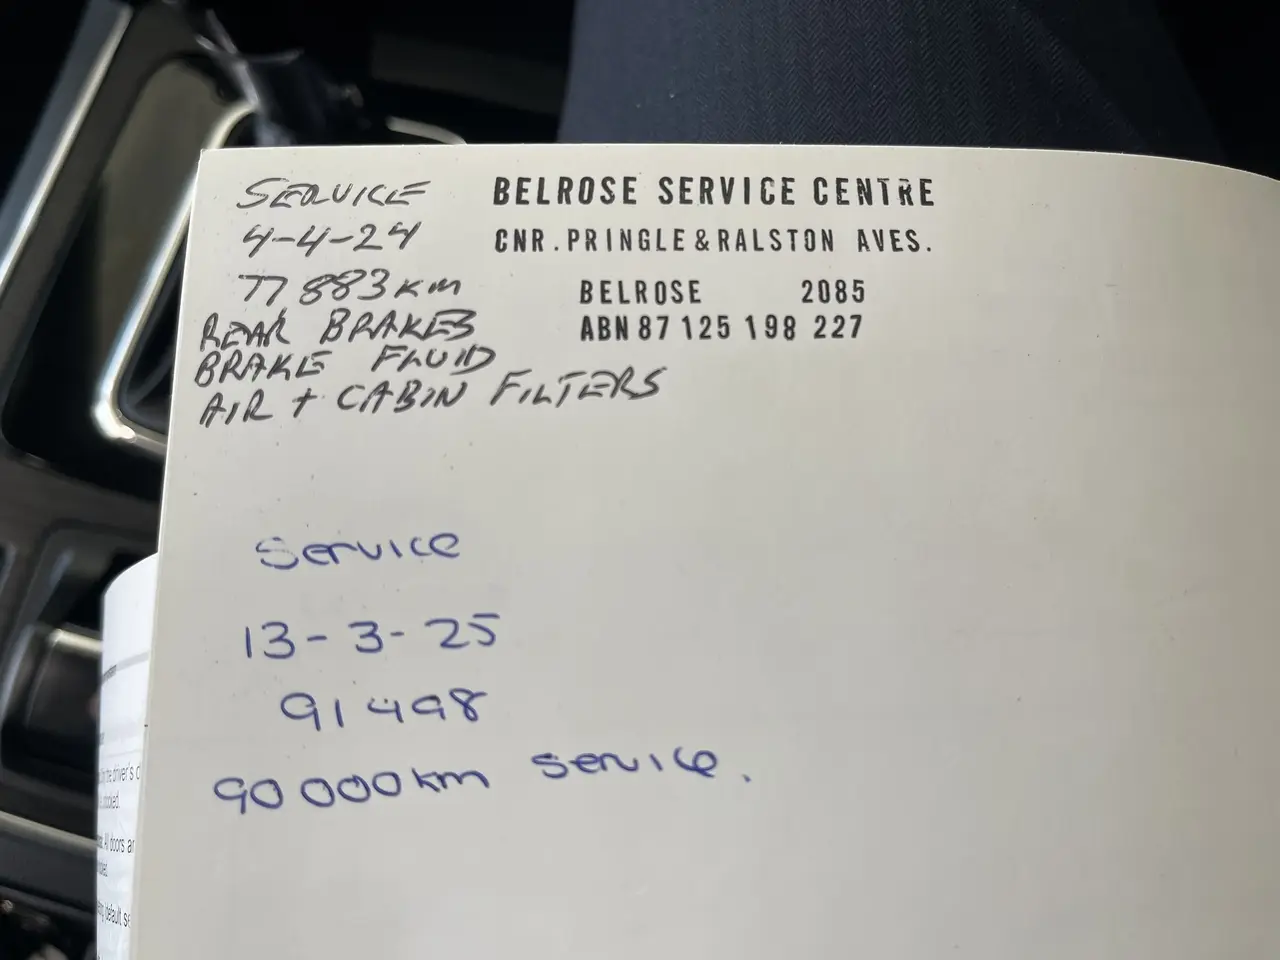 SERVICE
4-4-24
77 883 km
REAR BRAKES
BRAKE FLUID
AIR + CABIN FILTERS
BELROSE SERVICE CENTRE
CNR. PRINGLE & RALSTON AVES.
BELROSE 2085
ABN 87 125 198 227
Service
13-3-25
91 498
90 000km service.
the driver's
All doors ar
default se